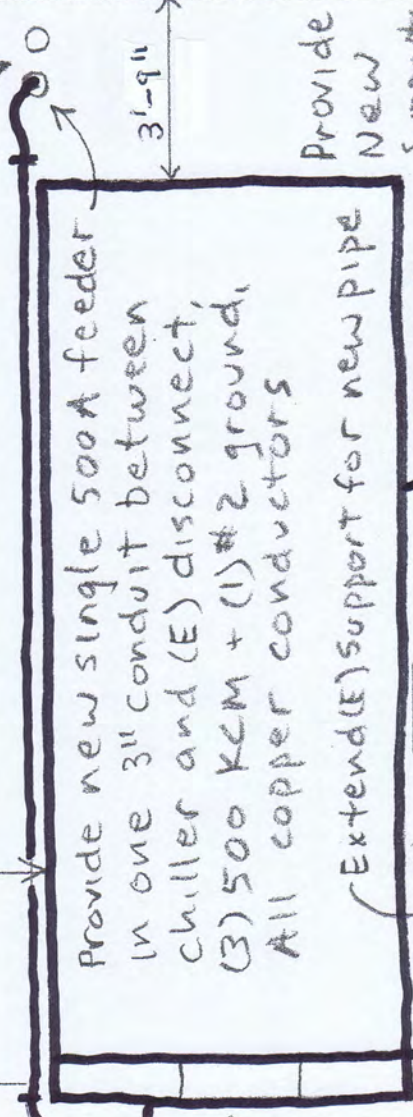 Provide new single 500A feeder
in one 3" conduit between
chiller and (E) disconnect,
(3) 500 KCM + (1) #2 ground,
All copper conductors
Extend (E) support for new pipe
3'-9"
Provide
New